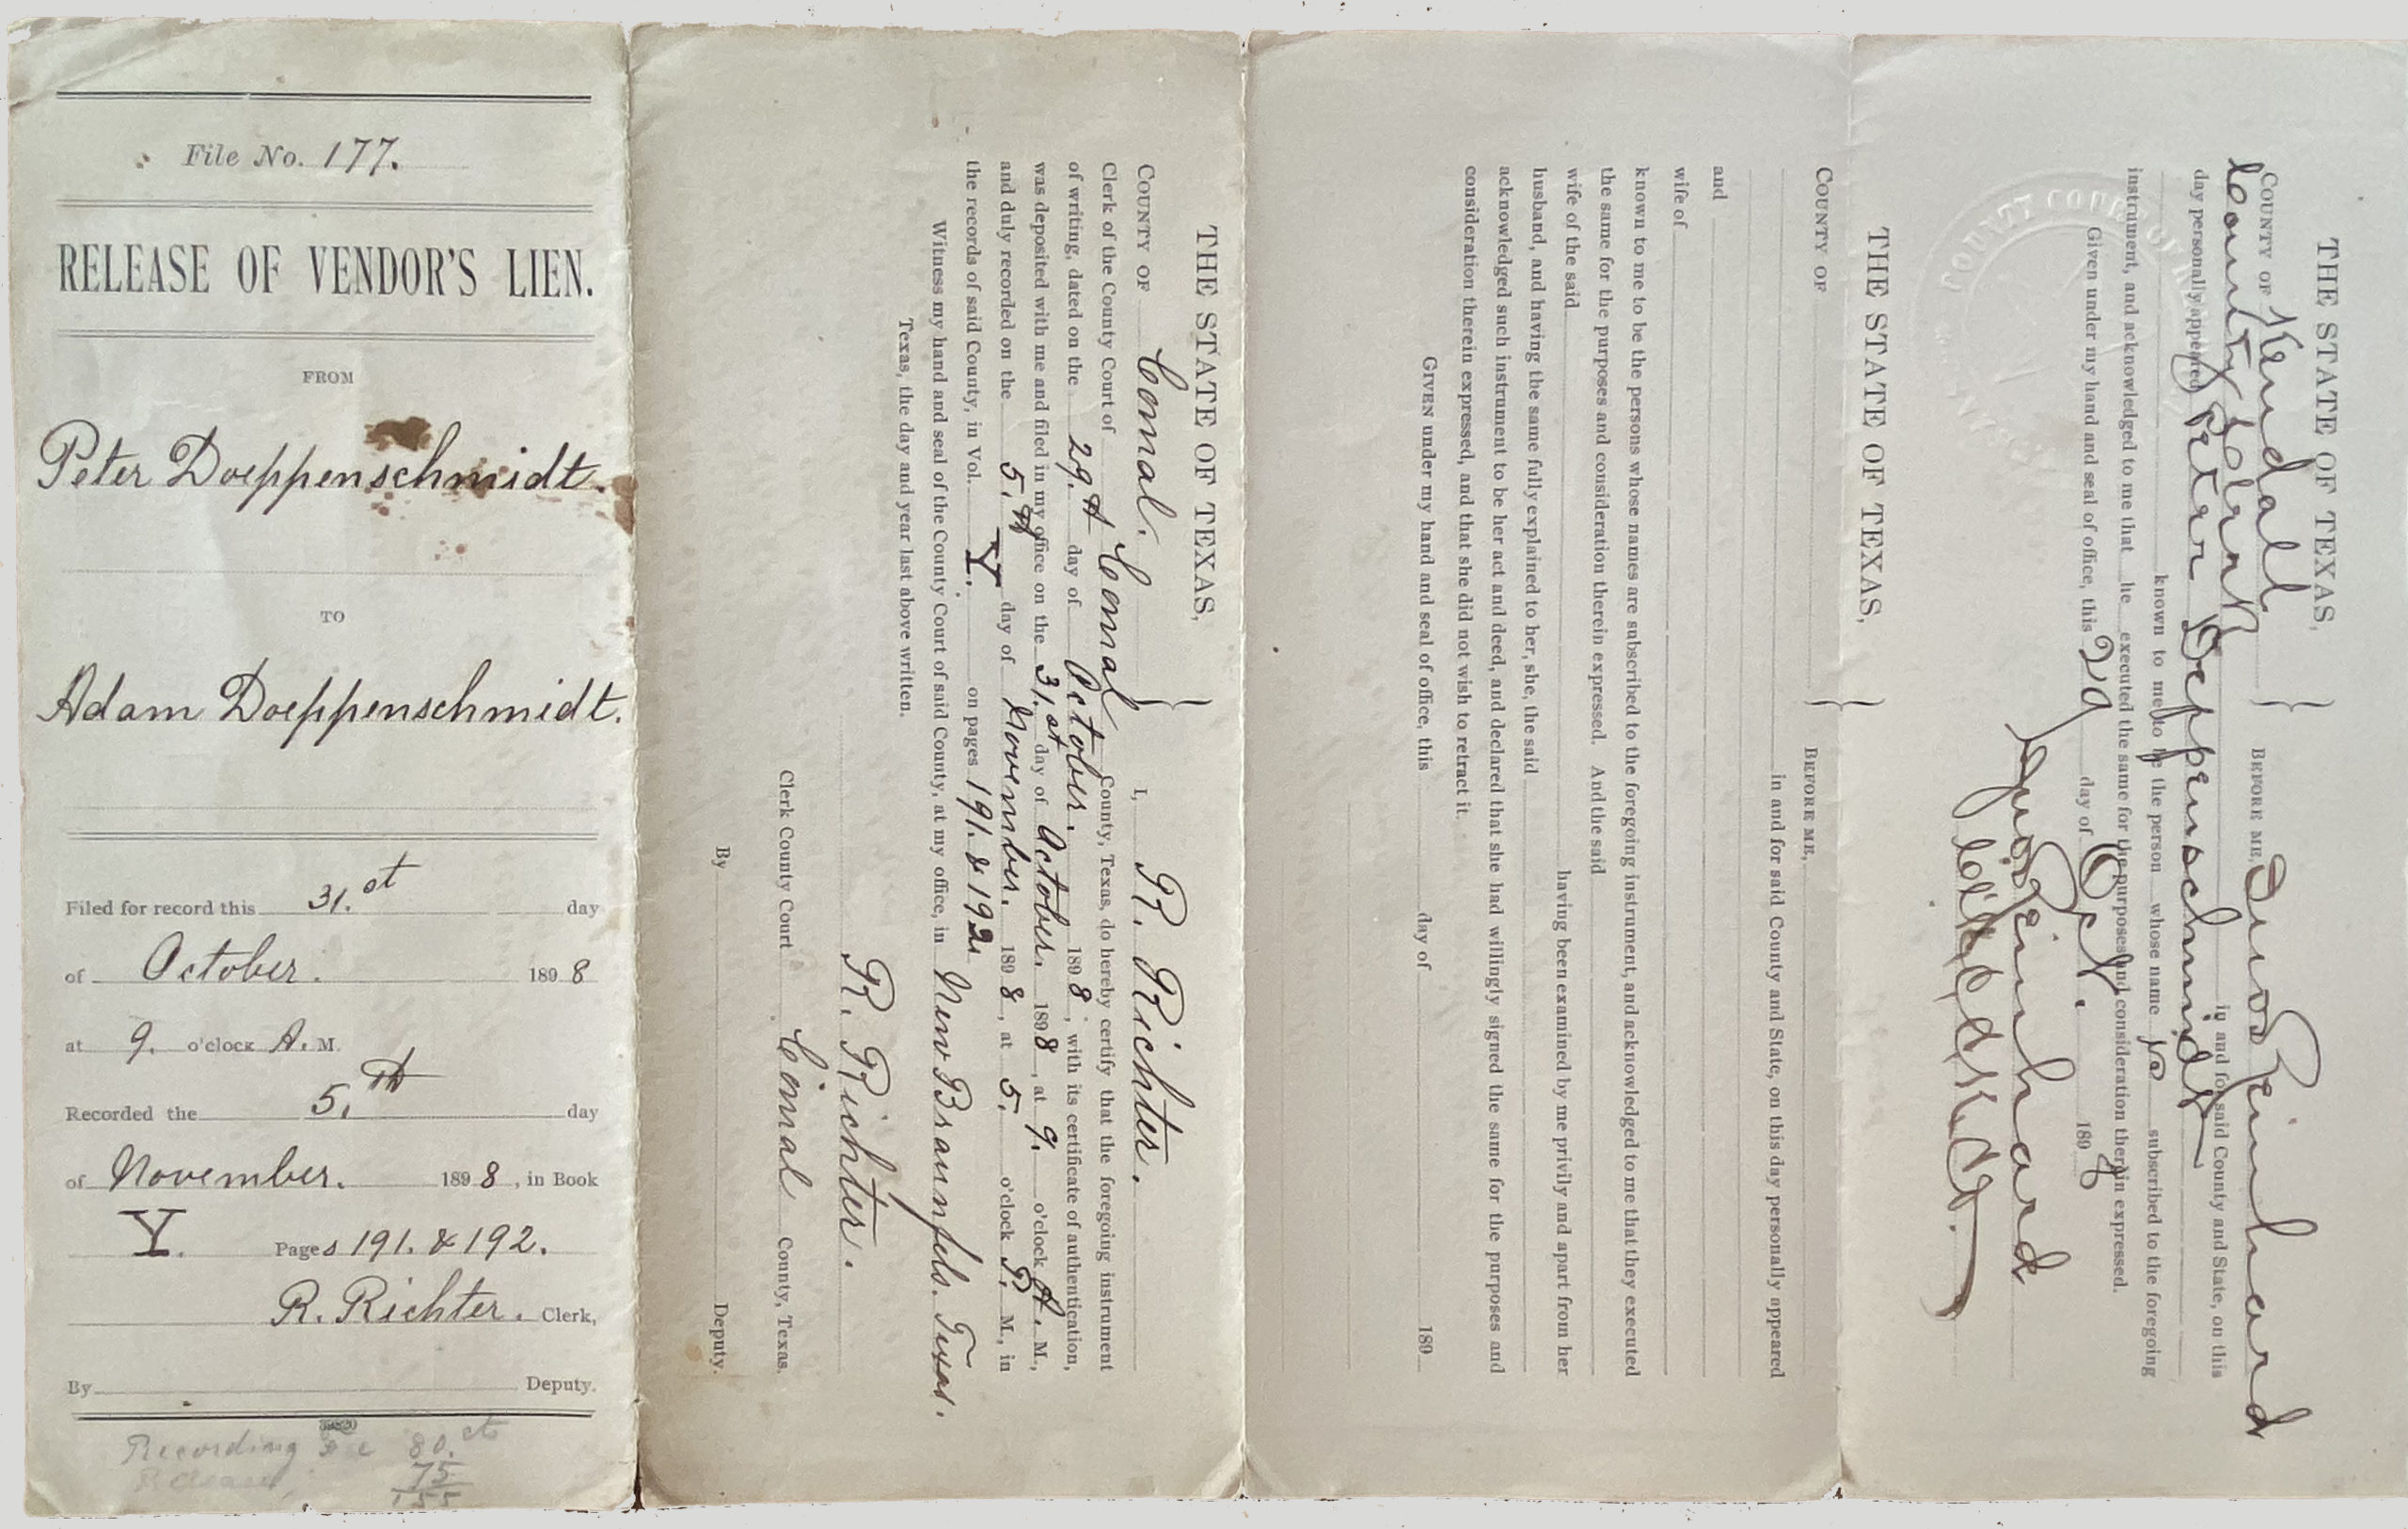 File No. 177.
RELEASE OF VENDOR'S LIEN.
FROM
Peter Doeppenschmidt.
TO
Adam Doeppenschmidt.
Filed for record this 31.st day
of October. 1898
at 9. o'clock A. M.
Recorded the 5.th day
of November. 1898, in Book
Y. Pages 191. & 192.
R. Richter. Clerk,
By Deputy.
Recording 80. cts
Release, 75
155
THE STATE OF TEXAS,
COUNTY OF Comal. } I, R. Richter.
Clerk of the County Court of Comal County, Texas, do hereby certify that the foregoing instrument
of writing, dated on the 29.th day of October. 1898, with its certificate of authentication,
was deposited with me and filed in my office on the 31.st day of October. 1898, at 9. o'clock A. M.,
and duly recorded on the 5.th day of November. 1898, at 5. o'clock P. M., in
the records of said County, in Vol. Y. on pages 191. & 192.
Witness my hand and seal of the County Court of said County, at my office, in New Braunfels. Texas.
Texas, the day and year last above written.
R. Richter.
Clerk County Court Comal County, Texas.
By Deputy.
THE STATE OF TEXAS,
COUNTY OF } BEFORE ME,
in and for said County and State, on this day personally appeared
and
wife of
known to me to be the persons whose names are subscribed to the foregoing instrument, and acknowledged to me that they executed
the same for the purposes and consideration therein expressed. And the said
wife of the said having been examined by me privily and apart from her
husband, and having the same fully explained to her, she, the said
acknowledged such instrument to be her act and deed, and declared that she had willingly signed the same for the purposes and
consideration therein expressed, and that she did not wish to retract it.
GIVEN under my hand and seal of office, this day of 189
THE STATE OF TEXAS,
COUNTY OF Kendall } BEFORE ME, Reinhard
County Clerk in and for said County and State, on this
day personally appeared Peter Doeppenschmidt
known to me to be the person whose name is subscribed to the foregoing
instrument, and acknowledged to me that he executed the same for the purposes and consideration therein expressed.
Given under my hand and seal of office, this 29 day of Oct. 1898
Reinhard
COUNTY COURT